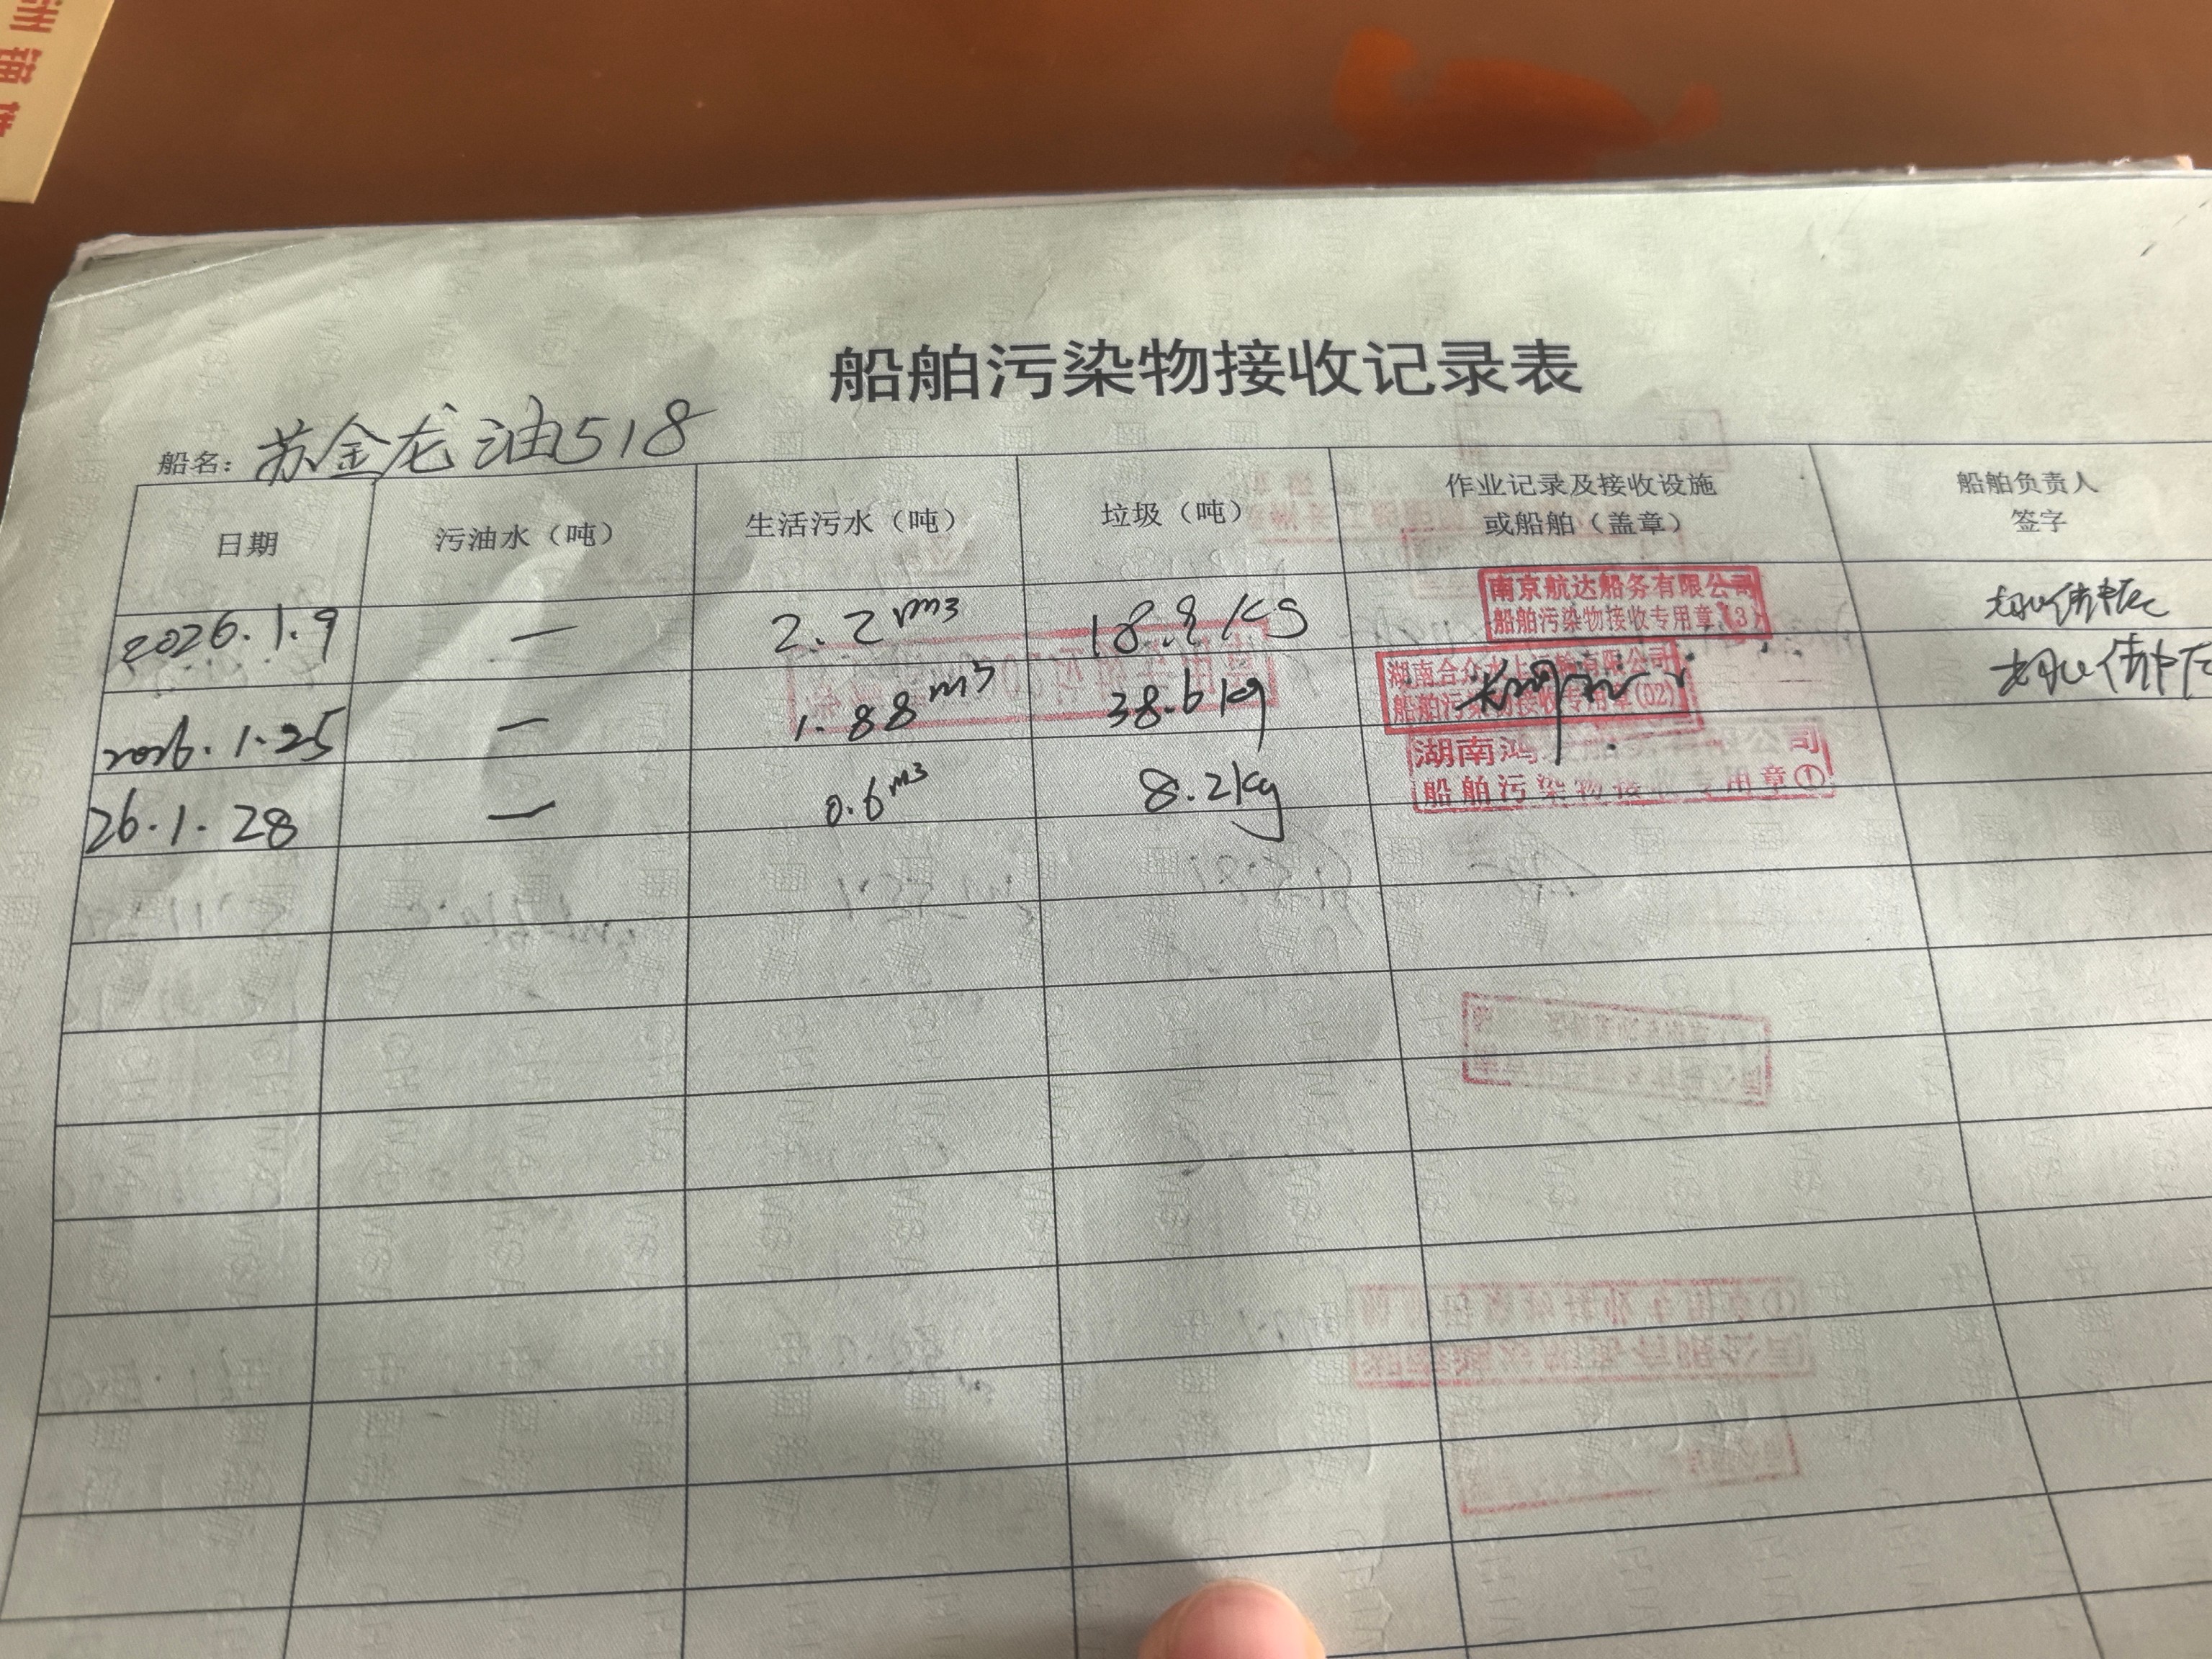 船舶污染物接收记录表
船名：苏金龙油518
日期 污油水（吨） 生活污水（吨） 垃圾（吨） 作业记录及接收设施或船舶（盖章） 船舶负责人签字
2026.1.9 — 2.2m3 18.8kg 南京航达船务有限公司
船舶污染物接收专用章（3）
2026.1.25 — 1.88m3 38.6kg 湖南合众水上运输有限公司
船舶污染物接收专用章(02)
26.1.28 — 0.6m3 8.2kg 湖南鸿 有限公司
船舶污染物接收专用章①